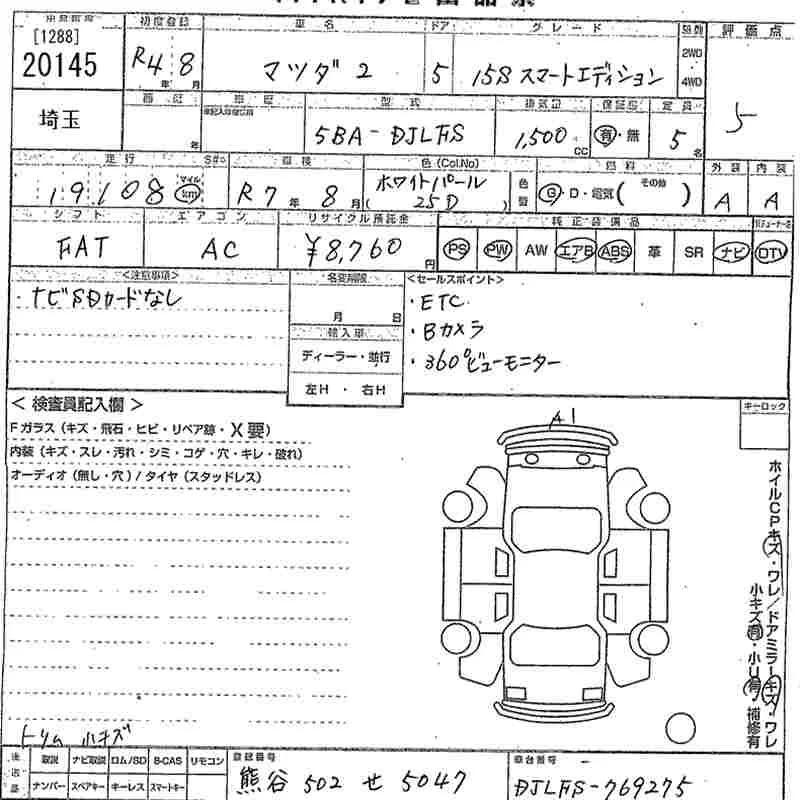 [1288]
20145
初度登録
車名
ドア
グレード
評価点
R4年8月
マツダ2
5
15S スマートエディション
2WD
4WD
5
埼玉
年
型式
排気量
定員
5BA-DJLFS
1,500cc
有・無
5名
走行
車検
色(Col.No)
燃料
外装
内装
19,108
マイル
km
R7年8月
ホワイトパール
25D
色替
G・D・電気( その他 )
A
A
シフト
エアコン
リサイクル預託金
純正装備品
FAT
AC
¥8,760円
PS
PW
AW
エアB
ABS
革
SR
ナビ
DTV
<注意事項>
名変期限
<セールスポイント>
ナビSDカードなし
月 日
・ETC
・Bカメラ
・360°ビューモニター
輸入車
ディーラー・並行
左H・右H
<検査員記入欄>
Fガラス(キズ・飛石・ヒビ・リペア跡・X要)
内装(キズ・スレ・汚れ・シミ・コゲ・穴・キレ・破れ)
オーディオ(無し・穴)/タイヤ(スタッドレス)
A1
キーロック
ホイルCPキズ・ワレ/ドアミラーキズ・ワレ
小キズ有・小U有・補修有
トリム 小キズ
後送品
取説
ナビ取説
ロム/SD
B-CAS
リモコン
ナンバー
スペアキー
キーレス
スマートキー
登録番号
熊谷 502 せ 5047
車台番号
DJLFS-769275